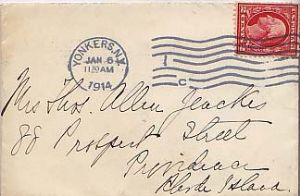 YONKERS, N.Y.
JAN 6
11 30 AM
1914
1
C
Mrs Thos. Allen Jenckes
88 Prospect Street
Providence
Rhode Island.